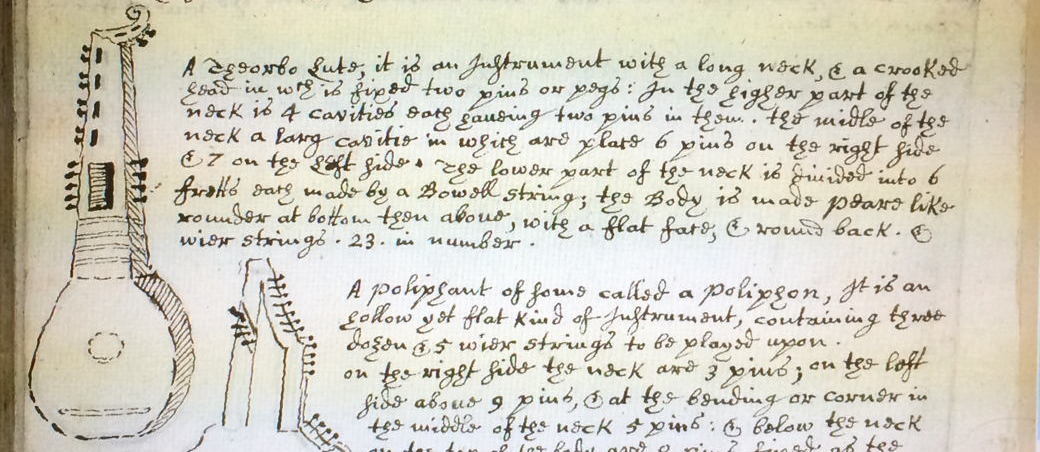 A Theorbo Lute, it is an Instrument with a long neck, & a crooked
head in wch is fixed two pins or pegs: In the higher part of the
neck is 4 cavities each haveing two pins in them. the midle of the
neck a larg cavitie in which are place 6 pins on the right side
& 7 on the left side. The lower part of the neck is divided into 6
fretts each made by a Bowell string; the Body is made peare like
rounder at bottom then above, with a flat face, & round back. &
wier strings. 23. in number.
A Poliphant of some called a Poliphon, It is an
hollow yet flat kind of Instrument, containing three
dozen & 5 wier strings to be played upon.
on the right side the neck are 3 pins; on the left
side above 9 pins, & at the bending or corner in
the middle of the neck 5 pins: & below the neck
on the top of the body are 8 pins fixed as the